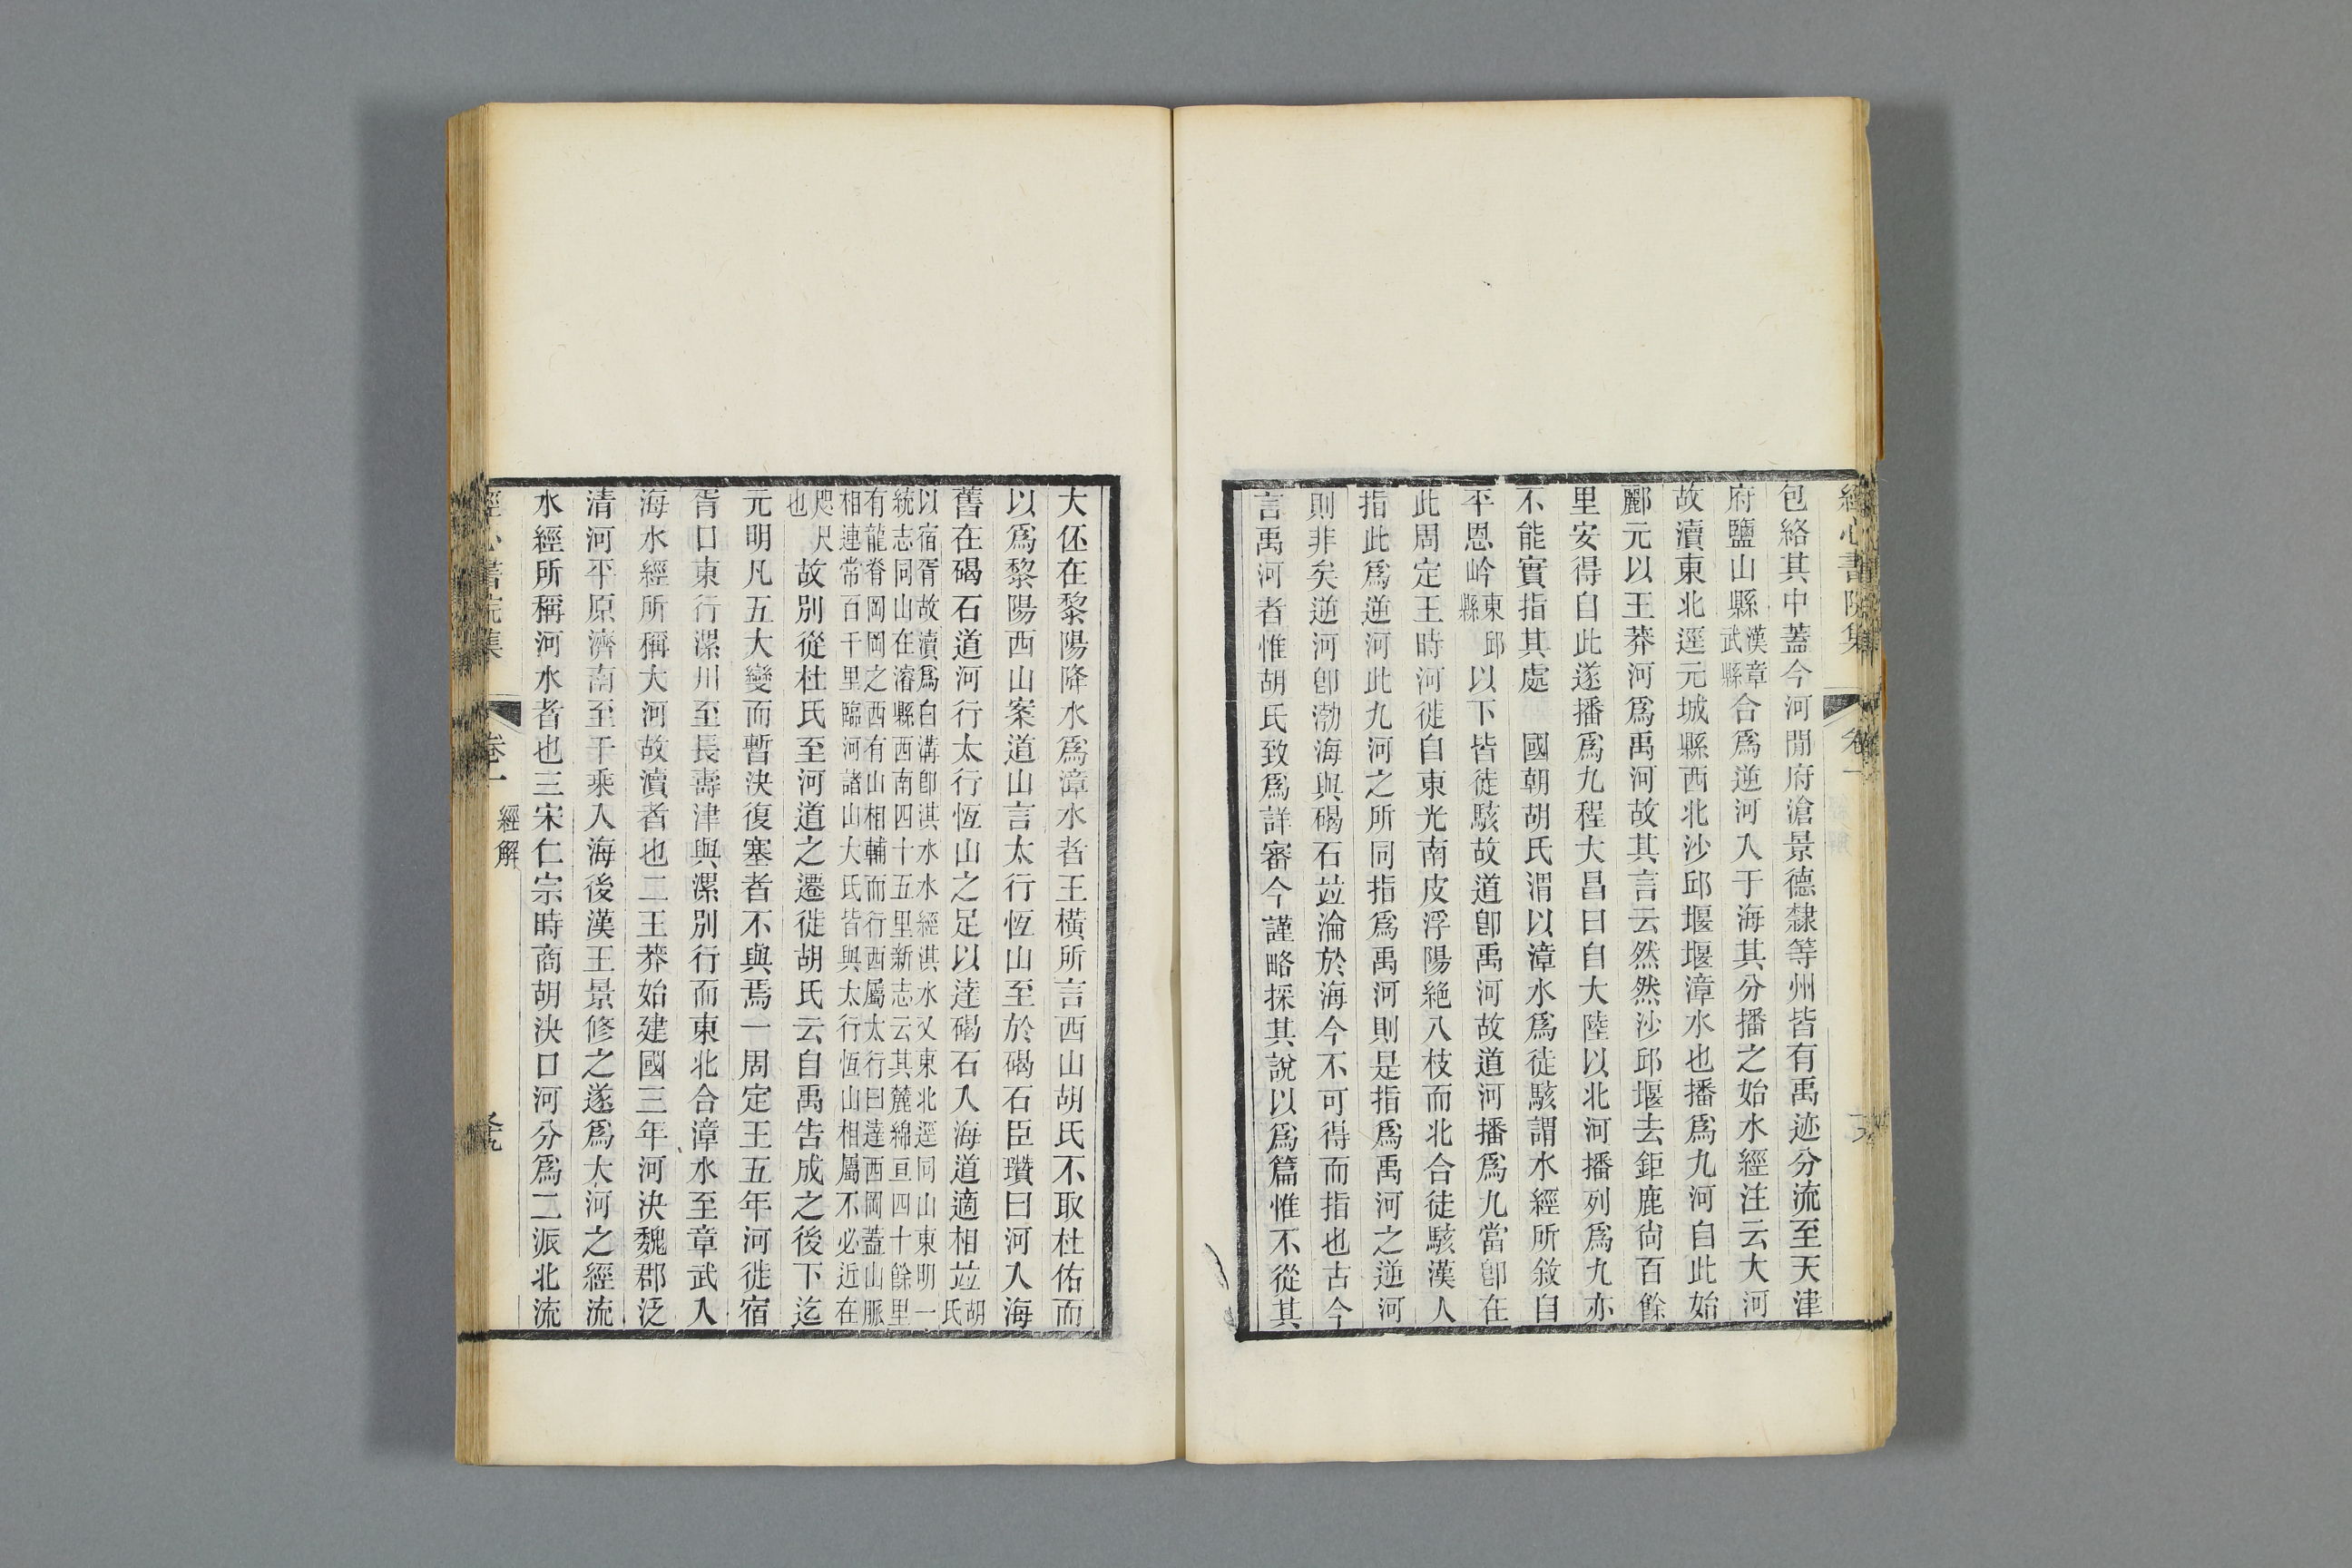 包絡其中蓋今河閒府滄景德隸等州皆有禹迹分流至天津
府鹽山縣漢章武縣合爲逆河入于海其分播之始水經注云大河
故瀆東北逕元城縣西北沙邱堰堰漳水也播爲九河自此始
酈元以王莽河爲禹河故其言云然然沙邱堰去鉅鹿尙百餘
里安得自此遂播爲九程大昌曰自大陸以北河播列爲九亦
不能實指其處 國朝胡氏渭以漳水爲徒駭謂水經所敘自
平恩岭東邱縣以下皆徒駭故道卽禹河故道河播爲九當卽在
此周定王時河徙自東光南皮浮陽絶八枝而北合徒駭漢人
指此爲逆河此九河之所同指爲禹河則是指爲禹河之逆河
則非矣逆河卽渤海與碣石竝淪於海今不可得而指也古今
言禹河者惟胡氏致爲詳審今謹略採其說以爲篇惟不從其
大伾在黎陽降水爲漳水者王橫所言西山胡氏不取杜佑而
以爲黎陽西山案道山言太行恆山至於碣石臣瓚曰河入海
舊在碣石道河行太行恆山之足以達碣石入海道適相竝胡氏
以宿胥故瀆爲自溝卽淇水水經淇水又東北逕同山東明一
統志同山在濬縣西南四十五里新志云其麓綿亘四十餘里
有龍脊岡岡之西有山相輔而行西屬太行曰達西岡蓋山脈
相連常百千里臨河諸山大氏皆與太行恆山相屬不必近在
咫尺也故別從杜氏至河道之遷徙胡氏云自禹告成之後下迄
元明凡五大變而暫決復塞者不與焉一周定王五年河徙宿
胥口東行漯川至長壽津與漯別行而東北合漳水至章武入
海水經所稱大河故瀆者也二王莽始建國三年河決魏郡泛
清河平原濟南至千乘入海後漢王景修之遂爲大河之經流
水經所稱河水者也三宋仁宗時商胡決口河分爲二派北流
經心書院集 卷一 經解